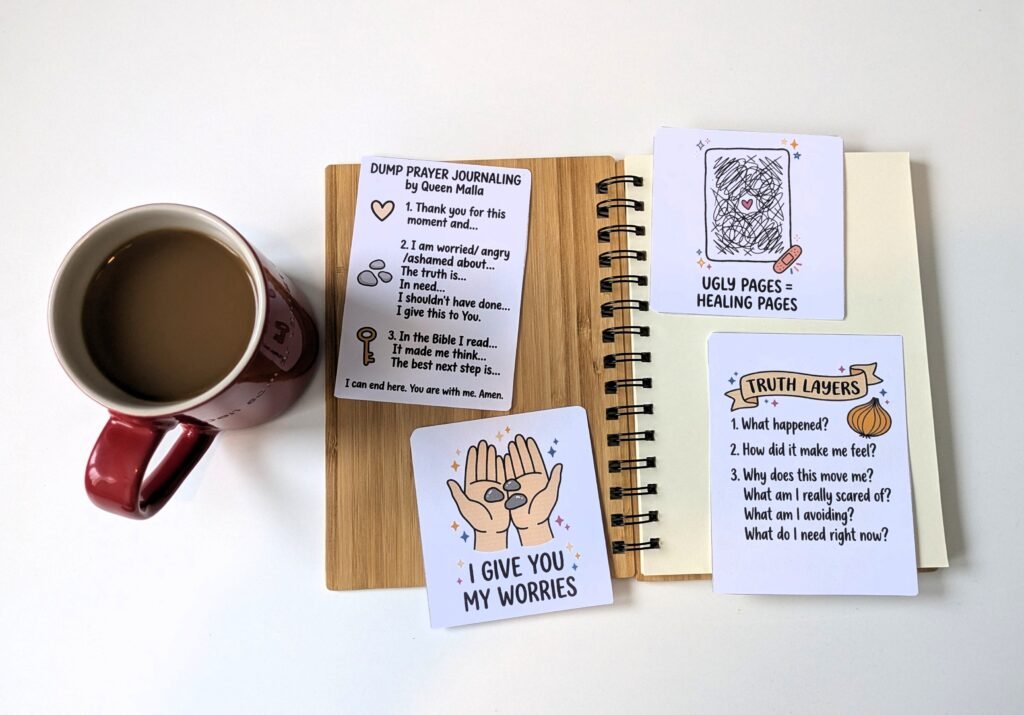 DUMP PRAYER JOURNALING
by Queen Malla
1. Thank you for this
moment and...
2. I am worried/ angry
/ashamed about...
The truth is...
In need...
I shouldn't have done...
I give this to You.
3. In the Bible I read...
It made me think...
The best next step is...
I can end here. You are with me. Amen.
I GIVE YOU
MY WORRIES
UGLY PAGES =
HEALING PAGES
TRUTH LAYERS
1. What happened?
2. How did it make me feel?
3. Why does this move me?
What am I really scared of?
What am I avoiding?
What do I need right now?